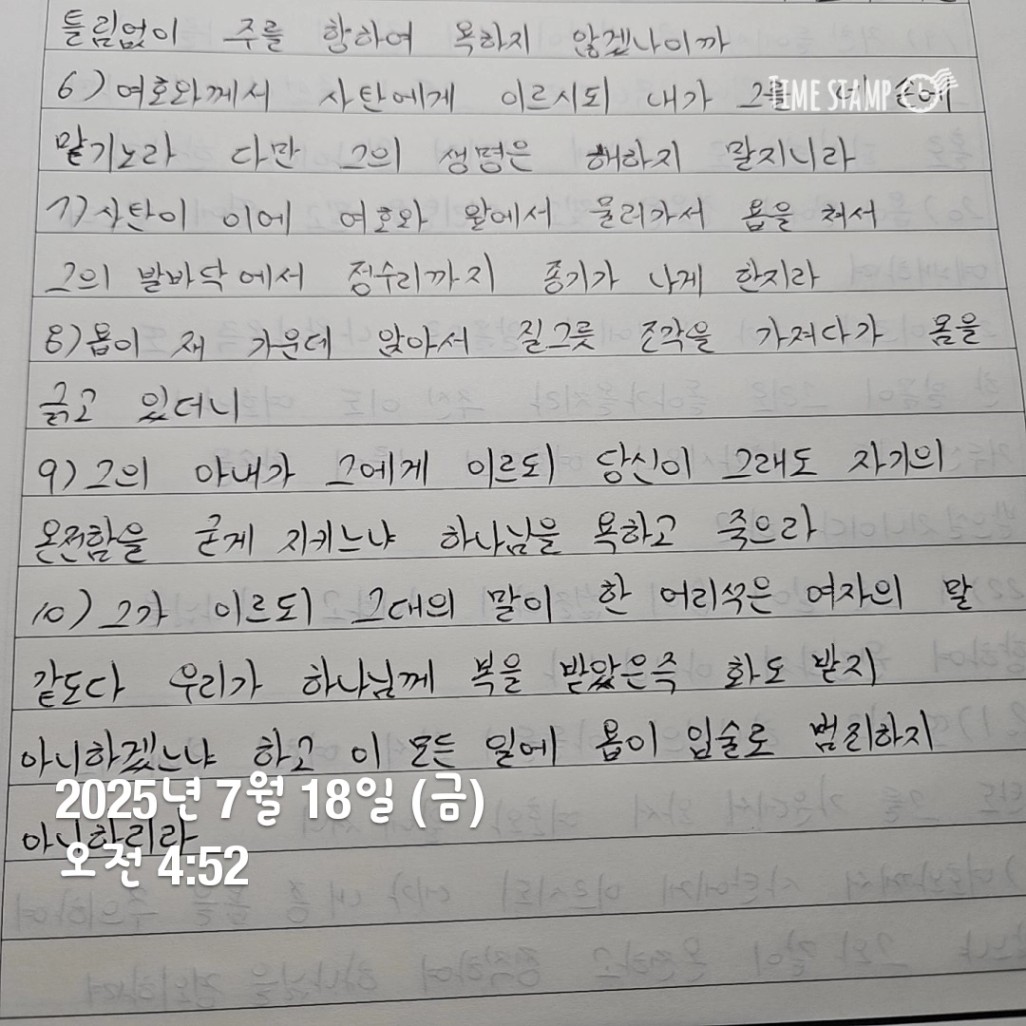 틀림없이 주를 향하여 욕하지 않겠나이까
6) 여호와께서 사탄에게 이르시되 내가 그를 네 손에
TIME STAMP
맡기노라 다만 그의 생명은 해하지 말지니라
7) 사탄이 이에 여호와 앞에서 물러가서 욥을 쳐서
그의 발바닥에서 정수리까지 종기가 나게 한지라
8) 욥이 재 가운데 앉아서 질그릇 조각을 가져다가 몸을
긁고 있더니
9) 그의 아내가 그에게 이르되 당신이 그래도 자기의
온전함을 굳게 지키느냐 하나님을 욕하고 죽으라
10) 그가 이르되 그대의 말이 한 어리석은 여자의 말
같도다 우리가 하나님께 복을 받았은즉 화도 받지
아니하겠느냐 하고 이 모든 일에 욥이 입술로 범죄하지
2025년 7월 18일 (금)
아니하리라
오전 4:52